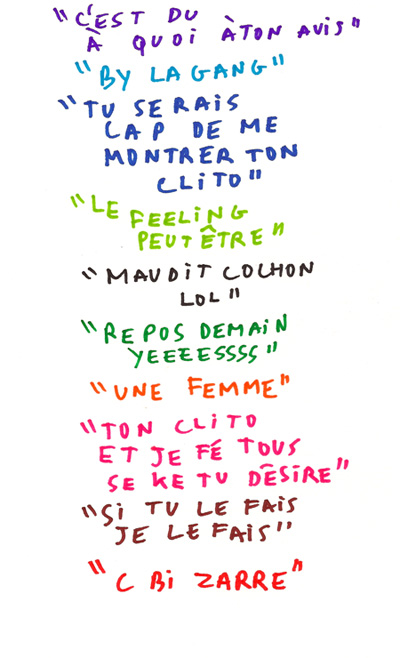 "C'EST DU
À QUOI ÀTON AVIS"
"BY LA GANG"
"TU SERAIS
CAP DE ME
MONTRER TON
CLiTO"
"LE FEELiNG
PEUT ÊTRE"
"MAUDiT COCHON
LOL"
"REPOS DEMAiN
YEEEESSSS"
"UNE FEMME"
"TON CLiTO
ET JE FÉ TOUS
SE KE TU DÊSiRE"
"Si TU LE FAiS
JE LE FAiS"
"C Bi ZARRE"